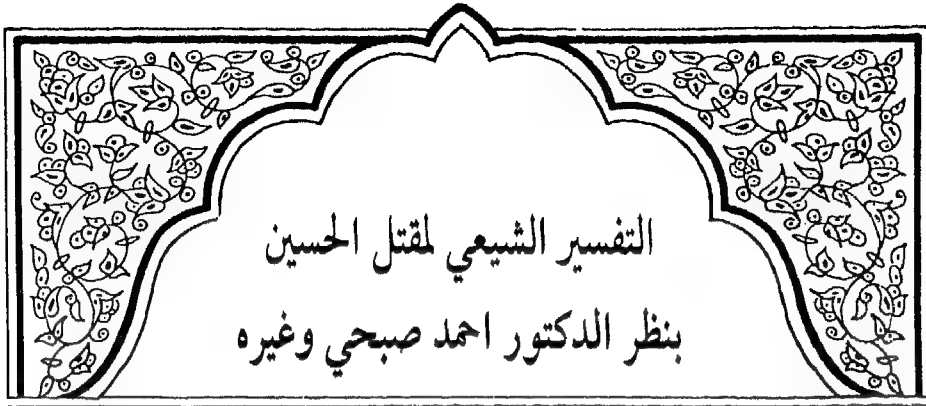 التفسير الشيعي لمقتل الحسين
بنظر الدكتور احمد صبحي وغيره